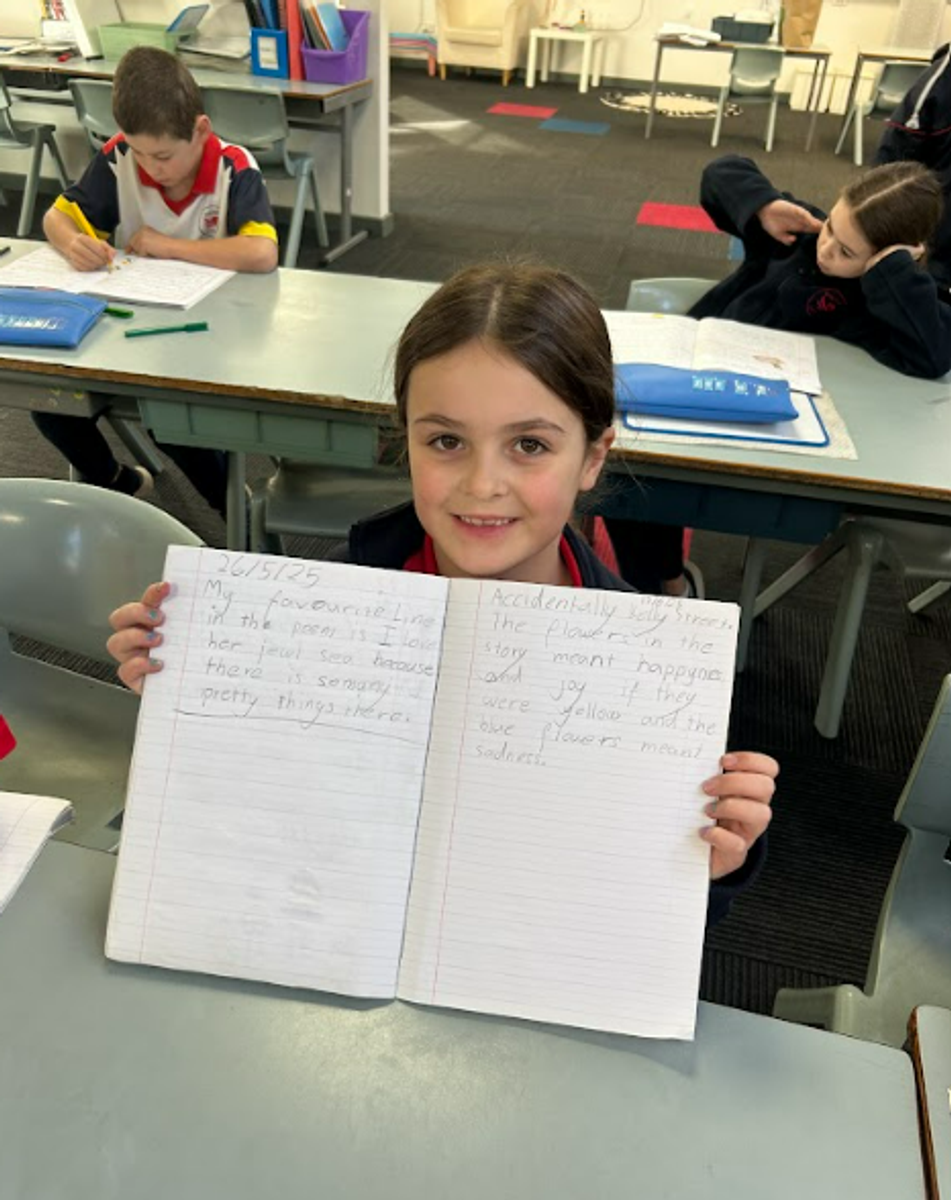 26/5/25
My favourite Line
in the poem is I love
her jewl sea because
there is somany
pretty things there.
Accidentally Kelly Street.
The flowers in the
story meant happynes
and joy if they
were yellow and the
blue flowers meant
sadness.